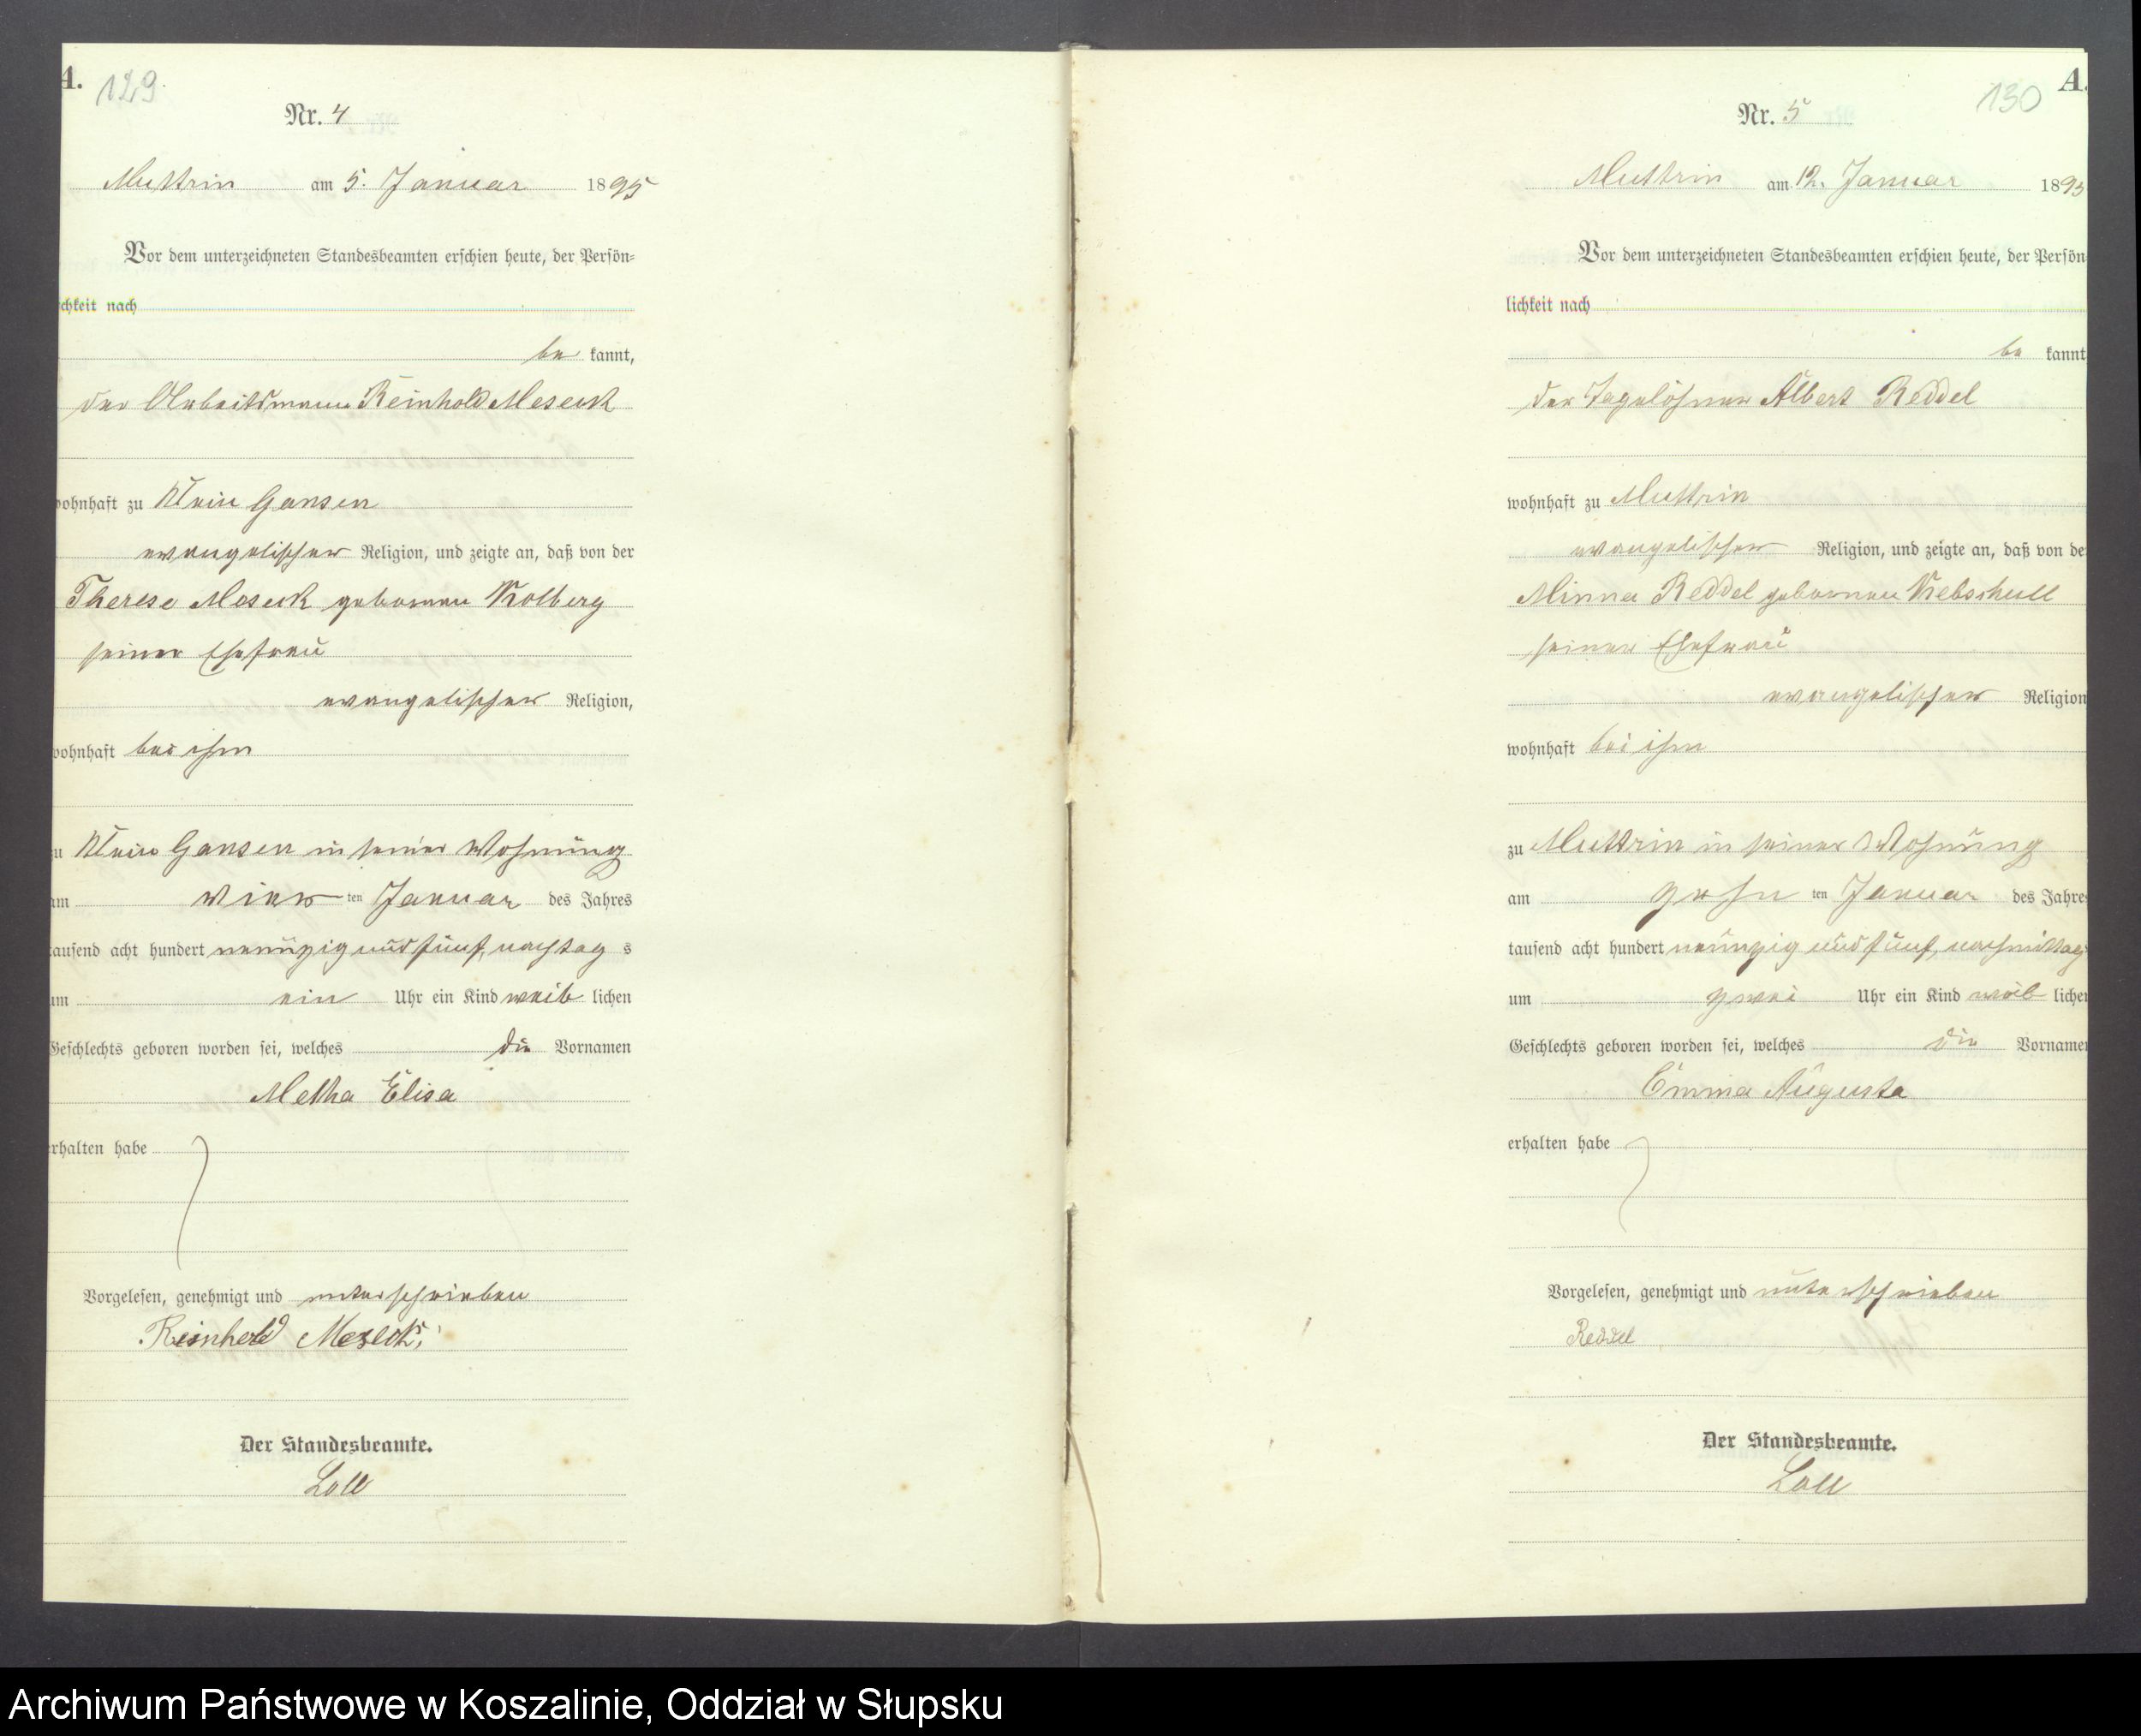 A.
129.
Nr. 4
Muttrin am 5. Januar 1895
Vor dem unterzeichneten Standesbeamten erschien heute, der Persön-
chkeit nach
be kannt,
der Arbeitsmann Reinhold Meseck
wohnhaft zu Klein Gansen
evangelischer Religion, und zeigte an, daß von der
Therese Meseck geborenen Kolberg
seiner Ehefrau
evangelischer Religion,
wohnhaft bei ihm
zu Klein Gansen in seiner Wohnung
am vier ten Januar des Jahres
tausend acht hundert neunzig und fünf, nachtag s
um ein Uhr ein Kind weib lichen
Geschlechts geboren worden sei, welches die Vornamen
Metha Elisa
erhalten habe
Vorgelesen, genehmigt und unterschrieben
Reinhold Meseck
Der Standesbeamte.
Loll
A.
130
Nr. 5
Muttrin am 12. Januar 1895
Vor dem unterzeichneten Standesbeamten erschien heute, der Persön
lichkeit nach
be kannt
der Tagelöhner Albert Reddel
wohnhaft zu Muttrin
evangelischer Religion, und zeigte an, daß von de
Minna Reddel geborenen Kebschull
seiner Ehefrau
evangelischer Religion
wohnhaft bei ihm
zu Muttrin in seiner Wohnung
am zehn ten Januar des Jahres
tausend acht hundert neunzig und fünf, nachmittag
um zwei Uhr ein Kind weib lichen
Geschlechts geboren worden sei, welches die Vornamen
Emma Augusta
erhalten habe
Vorgelesen, genehmigt und unterschrieben
Reddel
Der Standesbeamte.
Loll
Archiwum Państwowe w Koszalinie, Oddział w Słupsku